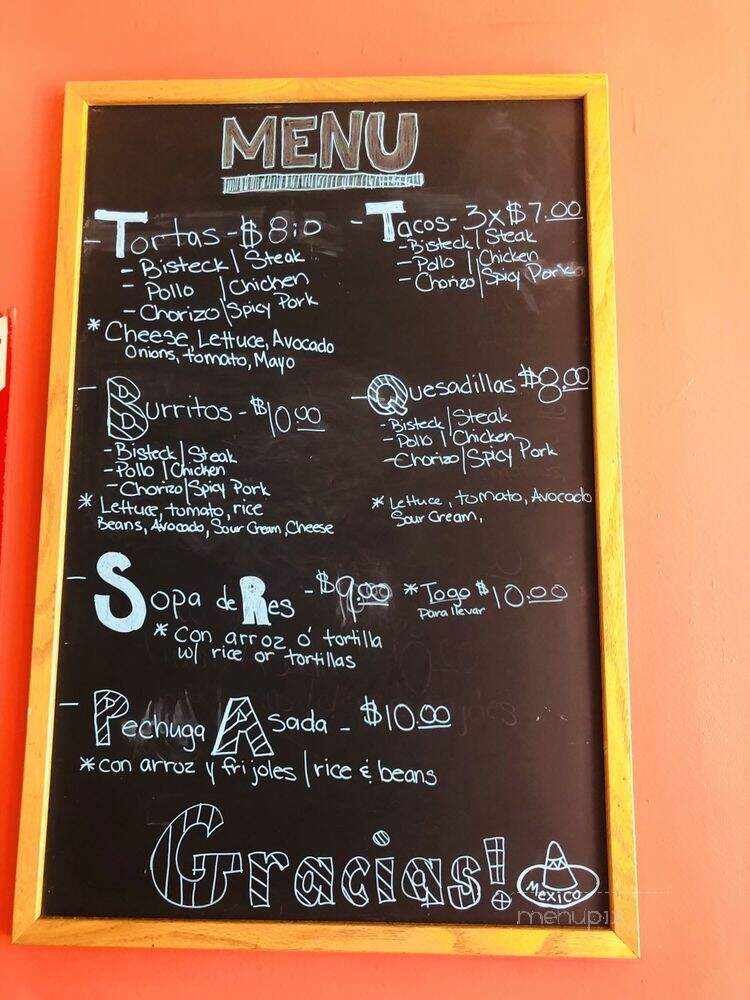 MENU
- Tortas - $8.0
- Bisteck | Steak
- Pollo | Chicken
- Chorizo | Spicy Pork
* Cheese, Lettuce, Avocado
Onions, tomato, Mayo
- Tacos - 3x$7.00
- Bisteck | Steak
- Pollo | Chicken
- Chorizo | Spicy Pork
- Burritos - $10.00
- Bisteck | Steak
- Pollo | Chicken
- Chorizo | Spicy Pork
* Lettuce, tomato, rice
Beans, Avocado, Sour Cream, Cheese
- Quesadillas $8.00
- Bisteck | Steak
- Pollo | Chicken
- Chorizo | Spicy Pork
* Lettuce, tomato, Avocado
Sour Cream,
- Sopa de Res - $9.00 * Togo $10.00
Para llevar
* con arroz o' tortilla
w/ rice or tortillas
- Pechuga Asada - $10.00
* con arroz y frijoles | rice & beans
Gracias!
Mexico
menupix